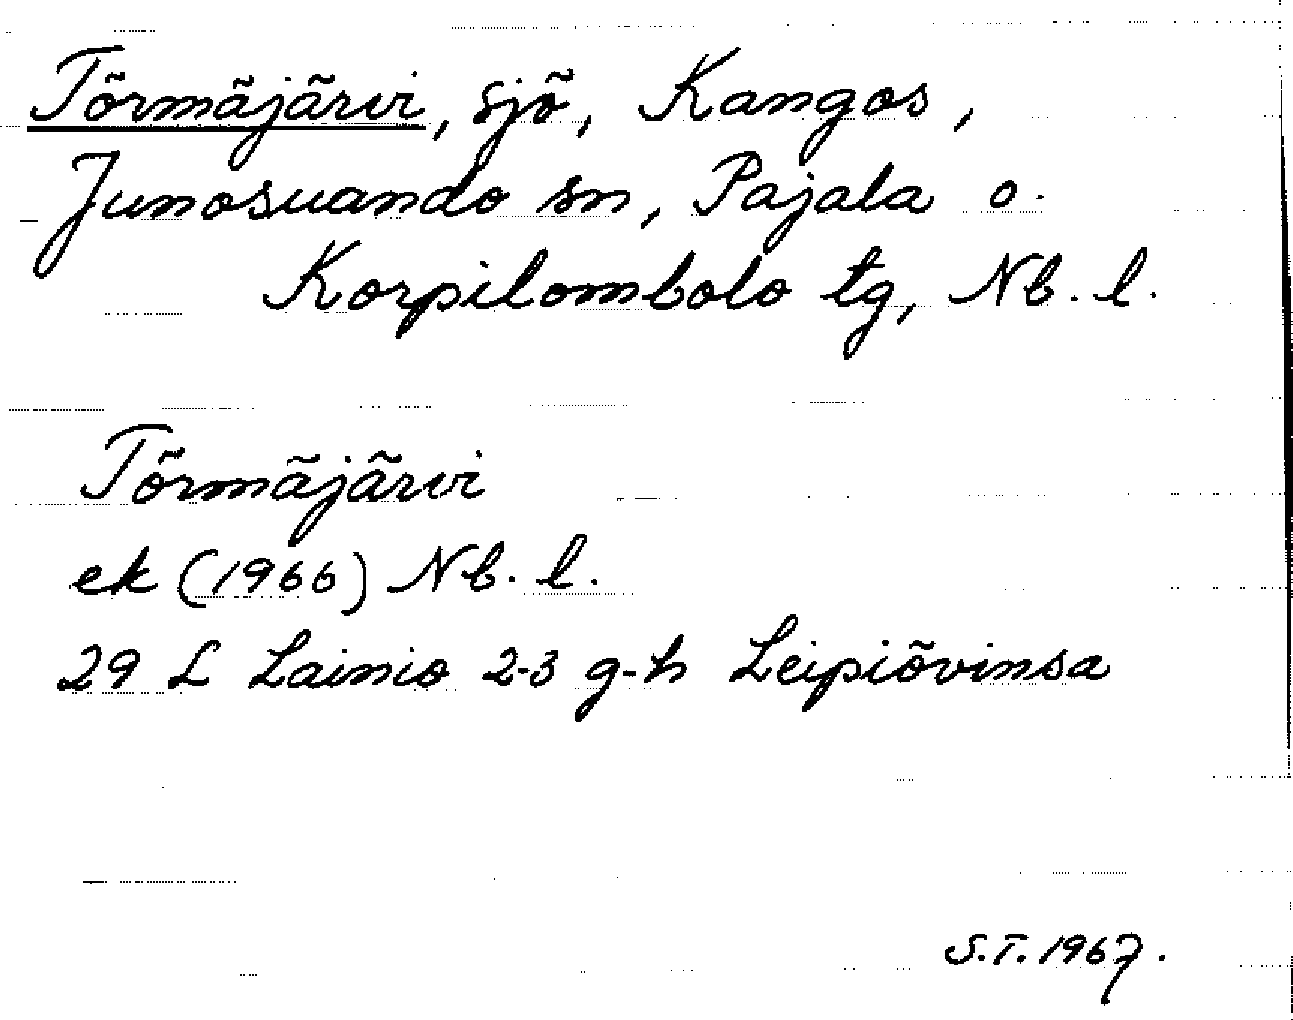 Törmäjärvi, sjö, Kangos,
Junosuando sn, Pajala o.
Korpilombolo tg, Nb. l.
Törmäjärvi
ek (1966) Nb. l.
29 L Lainio 2-3 g-h Leipiövinsa
S.T. 1967.